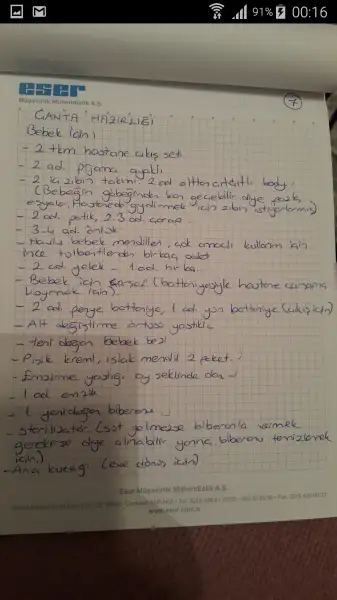 91% 00:16
eser
Müşavirlik Mühendislik A.Ş.
7
ÇANTA HAZIRLIĞI
Bebek için;
- 2 tkm hastane çıkış seti
- 2 ad. pijama ayaklı
- 2 zıbın takımı 2 ad alttan çıtçıtlı body
(Bebeğin göbeğinden kan geçebilir diye
Hastanede giydirmek için zıbın istiyorlarmış)
- 2 ad. patik, 2-3 ad. çorap
- 3-4 ad. önlük
- Havlu bebek mendilleri, çok amaçlı kullanım için
ince tülbentlerden birkaç adet
- 2 ad yelek - 1 ad. hırka
- Bebek için çarşaf (battaniyesiyle hastane
koymak için)
- 2 ad. penye battaniye, 1 ad. yün battaniye (çıkış için)
- Alt değiştirme örtüsü yastıklı
- Yeni doğan Bebek bezi
- Pişik kremi, ıslak mendil 2 paket.
- Emzirme yastığı ay şeklinde olan
- 1 ad. emzik
- 1 yenidoğan biberonu
- Sterilizatör (süt gelmezse biberonla vermek
gerekirse diye alınabilir yanına biberonu temizlemek
için)
- Ana kucağı (eve dönüş için)
Eser Müşavirlik Mühendislik A.Ş.
www.eser.com.tr